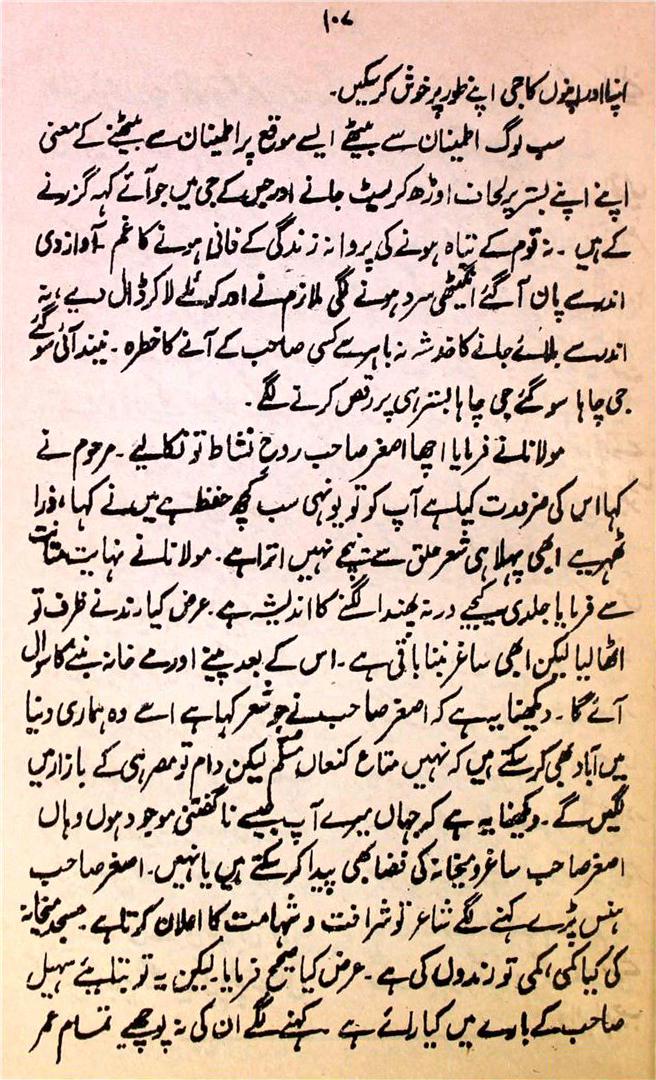 ۱۰۷
اپنا اور اپنوں کا جی اپنے طور پر خوش کر سکیں۔
سب لوگ اطمینان سے بیٹھے ایسے موقع پر اطمینان سے بیٹھنے کے معنی
اپنے اپنے بستر پر لحاف اوڑھ کر لیٹ جانے اور جس کے جی میں جو آئے کہہ گزرنے
کے ہیں۔ نہ قوم کے تباہ ہونے کی پروا نہ زندگی کے فانی ہونے کا غم۔ آواز دی
اندر سے پان آ گئے انگیٹھی سرد ہونے لگی ملازم نے اور کوئلے لا کر ڈال دیے، نہ
اندر سے بلائے جانے کا خدشہ نہ باہر سے کسی صاحب کے آنے کا خطرہ۔ نیند آئی سو گئے
جی چاہا سو گئے جی چاہا بستر ہی پر رقص کرنے لگے۔
مولانا نے فرمایا اچھا اصغر صاحب روح نشاط تو نکالیے۔ مرحوم نے
کہا اس کی ضرورت کیا ہے آپ کو تو یونہی سب کچھ حفظ ہے میں نے کہا، ذرا
ٹھہریے ابھی پہلا ہی شعر حلق سے نیچے نہیں اترا ہے۔ مولانا نے نہایت متانت
سے فرمایا جلدی کیجیے ورنہ پھندا لگنے کا اندیشہ ہے۔ عرض کیا رند نے ظرف تو
اٹھا لیا لیکن ابھی ساغر بننا باقی ہے۔ اس کے بعد پینے اور مے خانہ بننے کا سوال
آئے گا۔ دیکھنا یہ ہے کہ اصغر صاحب نے جو شعر کہا ہے اسے وہ ہماری دنیا
میں آباد بھی کر سکتے ہیں کہ نہیں متاع کنعاں مسلّم لیکن دام تو مصر ہی کے بازار میں
لگیں گے۔ دیکھنا یہ ہے کہ جہاں میرے آپ جیسے ناگفتنی موجود ہوں وہاں
اصغر صاحب ساغر و میخانہ کی فضا بھی پیدا کر سکتے ہیں یا نہیں۔ اصغر صاحب
ہنس پڑے کہنے لگے شاعر تو شرافت و شہامت کا اعلان کرتا ہے۔ مسجد میخانہ
کی کیا کمی، کمی تو رندوں کی ہے۔ عرض کیا صحیح فرمایا۔ لیکن یہ تو بتلایئے سہیل
صاحب کے بارے میں کیا رائے ہے۔ کہنے لگے ان کی نہ پوچھیے تمام عمر